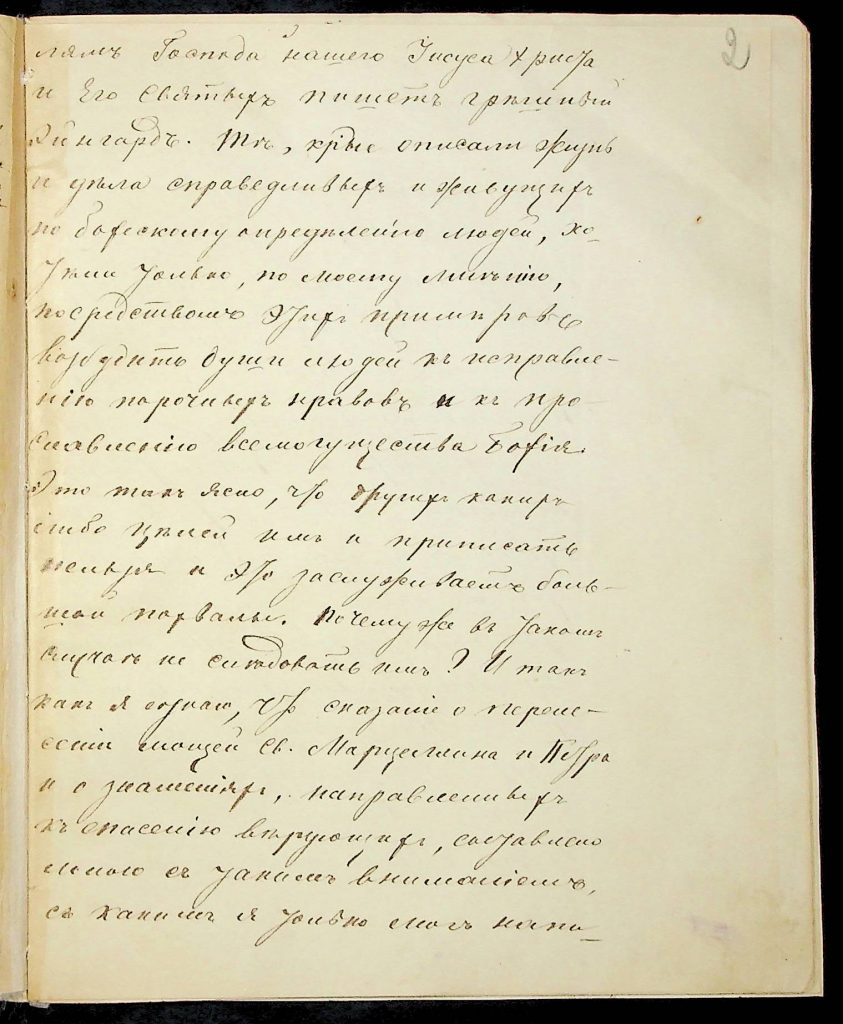 2
лямъ Господа нашего Іисуса Христа
и Его Святыхъ пишетъ грѣшный
Эйнгардъ. Тѣ, крые описали жизнь
и дѣла справедливыхъ и живущихъ
по божескому опредѣленію людей, хо-
тѣли только, по моему мнѣнію,
посредствомъ этихъ примѣровъ
возбудить души людей къ исправле-
нію порочныхъ нравовъ и къ про-
славленію всемогущества Божія.
Это такъ ясно, что другихъ какихъ
либо цѣлей имъ и приписать
нельзя и это заслуживаетъ боль-
шой похвалы. Почему же въ такомъ
случаѣ не слѣдовать имъ? И такъ
какъ я сознаю, что сказаніе о перене-
сеніи мощей Св. Марцеллина и Петра
и о знаменіяхъ, направленныхъ
къ спасенію вѣрующихъ, составлено
мною съ такимъ вниманіемъ,
съ какимъ я только могъ напи-